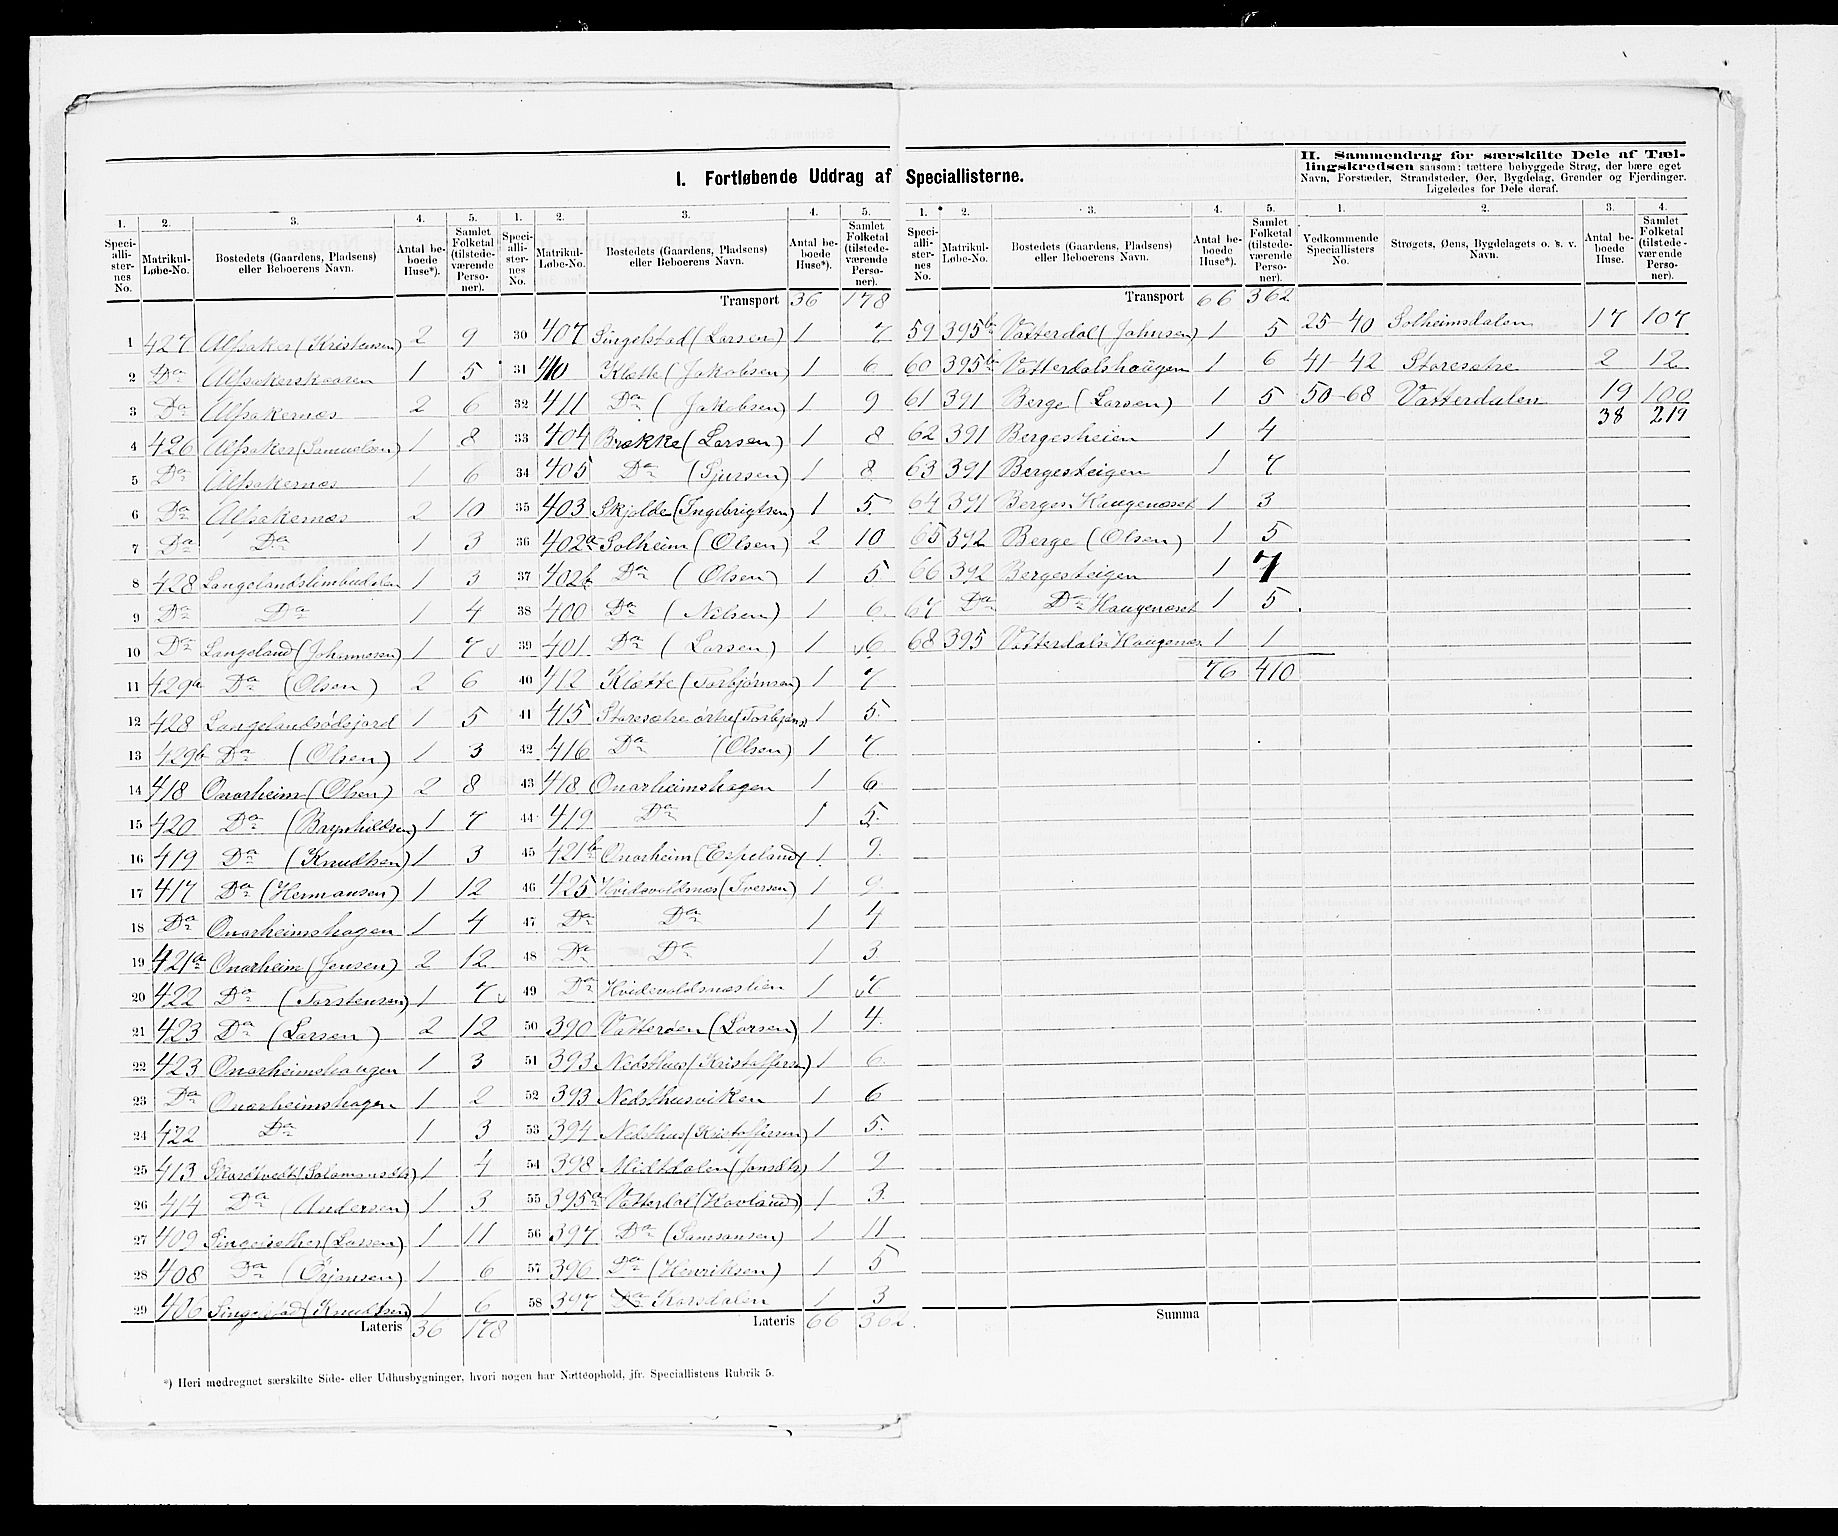 I. Fortløbende Uddrag af Speciallisterne.
II. Sammendrag for særskilte Dele af Tæl-
lingskredsen saasom: tættere bebyggede Strøg, der bære eget
Navn, Forstæder, Strandsteder, Øer, Bygdelag, Grender og Fjerdinger.
Ligeledes for Dele deraf.
1. 2. 3. 4. 5.
Speciallisternes No. Matrikul-Løbe-No. Bostedets (Gaardens, Pladsens) eller Beboerens Navn. Antal beboede Huse*). Samlet Folketal (tilstedeværende Personer).
1 427 Alfsaker (Kristensen) 2 9
2 Do Alfsakerskaaren 1 5
3 Do Alfsakernæs 2 6
4 426 Alfsaker (Samuelsen) 1 8
5 Do Alfsakernæs 1 6
6 Do Alfsakernæs 2 10
7 Do Do 1 3
8 428 Langelandslimbudalen 1 3
9 Do Do 1 4
10 Do Langeland (Johannesen) 1 7
11 429a Do (Olsen) 2 6
12 428 Langelandsødejord 1 5
13 429b Do (Olsen) 1 3
14 418 Onarheim (Olsen) 2 8
15 420 Do (Brynhildsen) 1 7
16 419 Do (Knudtsen) 1 3
17 417 Do (Hermansen) 1 12
18 Do Onarheimshagen 1 4
19 421a Onarheim (Jensen) 2 12
20 422 Do (Torstensen) 1 7
21 423 Do (Larsen) 2 12
22 423 Onarheimshaugen 1 3
23 Do Onarheimshagen 1 2
24 422 Do 1 3
25 413 Skardtvedt (Salamonsdtr) 1 4
26 414 Do (Andersen) 1 3
27 409 (Larsen) 1 11
28 408 Do (Grimsen) 1 6
29 406 (Knudtsen) 1 6
Lateris 36 178
1. 2. 3. 4. 5.
Speciallisternes No. Matrikul-Løbe-No. Bostedets (Gaardens, Pladsens) eller Beboerens Navn. Antal beboede Huse*). Samlet Folketal (tilstedeværende Personer).
Transport 36 178
30 407 Singelstad (Larsen) 1 7
31 410 Klætte (Jakobsen) 1 6
32 411 Do (Jakobsen) 1 9
33 404 Brække (Larsen) 1 8
34 405 Do (Sjursen) 1 8
35 403 Skjelde (Ingebrigtsen) 1 5
36 402a Solheim (Olsen) 2 10
37 402b Do (Olsen) 1 5
38 400 Do (Nilsen) 1 6
39 401 Do (Larsen) 1 6
40 412 Klætte (Torbjørnsen) 1 7
41 415 Storesætre øvre (Torbjøns) 1 5
42 416 Do (Olsen) 1 7
43 418 Onarheimshagen 1 6
44 419 Do 1 5
45 421b Onarheim (Espeland) 1 9
46 425 Hvidevoldnæs (Iversen) 1 9
47 Do Do 1 4
48 Do Do 1 3
49 Do Hvidevoldsnæslien 1 7
50 390 Vatterøen (Larsen) 1 4
51 393 Nedsthus (Kristoffersen) 1 6
52 393 Nedsthusviken 1 6
53 394 Nedsthus (Kristoffersen) 1 5
54 398 Midtdalen (Jonsdtr) 1 9
55 395a Vatterdal (Havland) 1 3
56 397 Do (Samsonsen) 1 11
57 396 Do (Henriksen) 1 5
58 397 Do Korsdalen 1 3
Lateris 66 362
1. 2. 3. 4. 5.
Speciallisternes No. Matrikul-Løbe-No. Bostedets (Gaardens, Pladsens) eller Beboerens Navn. Antal beboede Huse*). Samlet Folketal (tilstedeværende Personer).
Transport 66 362
59 395b Vatterdal (Johnsen) 1 5
60 395b Vatterdalshaugen 1 6
61 391 Berge (Larsen) 1 5
62 391 Bergesheien 1 4
63 391 Bergesteigen 1 7
64 391 Berges Haugenæset 1 3
65 392 Berge (Olsen) 1 5
66 392 Bergesteigen 1 7
67 Do Do Haugenæset 1 5
68 395 Vatterdals Haugenæs 1 1
76 410
Summa
1. 2. 3. 4.
Vedkommende Speciallisters No. Strøgets, Øens, Bygdelagets o. s. v. Navn. Antal beboede Huse. Samlet Folketal (tilstedeværende Personer).
25-40 Solheimsdalen 17 107
41-42 Storesætre 2 12
50-68 Vatterdalen 19 100
38 219
*) Heri medregnet særskilte Side- eller Udhusbygninger, hvori nogen har Natteophold, jfr. Speciallistens Rubrik 5.